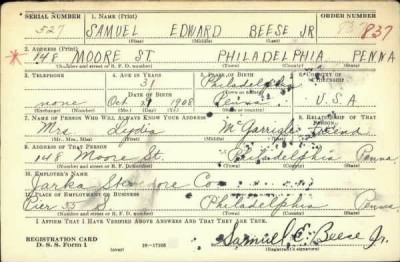 SERIAL NUMBER 1. NAME (Print) ORDER NUMBER
527 SAMUEL EDWARD BEESE JR 837
(First) (Middle) (Last)
2. ADDRESS (Print)
148 MOORE ST PHILADELPHIA PENNA
(Number and street or R. F. D. number) (Town) (County) (State)
3. TELEPHONE 4. AGE IN YEARS 5. PLACE OF BIRTH 6. COUNTRY OF CITIZENSHIP
31 Philadelphia
DATE OF BIRTH (Town or county)
none Oct 1908 Penna U.S.A
(Exchange) (Number) (Mo.) (Day) (Yr.) (State or country)
7. NAME OF PERSON WHO WILL ALWAYS KNOW YOUR ADDRESS 8. RELATIONSHIP OF THAT PERSON
Mrs Lydia McGarrigle friend
(Mr., Mrs., Miss) (First) (Middle) (Last)
9. ADDRESS OF THAT PERSON
148 Moore St. Philadelphia Penna
(Number and street or R. F. D. number) (Town) (County) (State)
10. EMPLOYER'S NAME
Jarka Stevedore Co
11. PLACE OF EMPLOYMENT OR BUSINESS
Pier 55 S Philadelphia Penna
(Number and street or R. F. D. number) (Town) (County) (State)
I AFFIRM THAT I HAVE VERIFIED ABOVE ANSWERS AND THAT THEY ARE TRUE.
REGISTRATION CARD
D. S. S. Form 1 (over) 16—17105 Samuel E. Beese Jr.
(Registrant's signature)